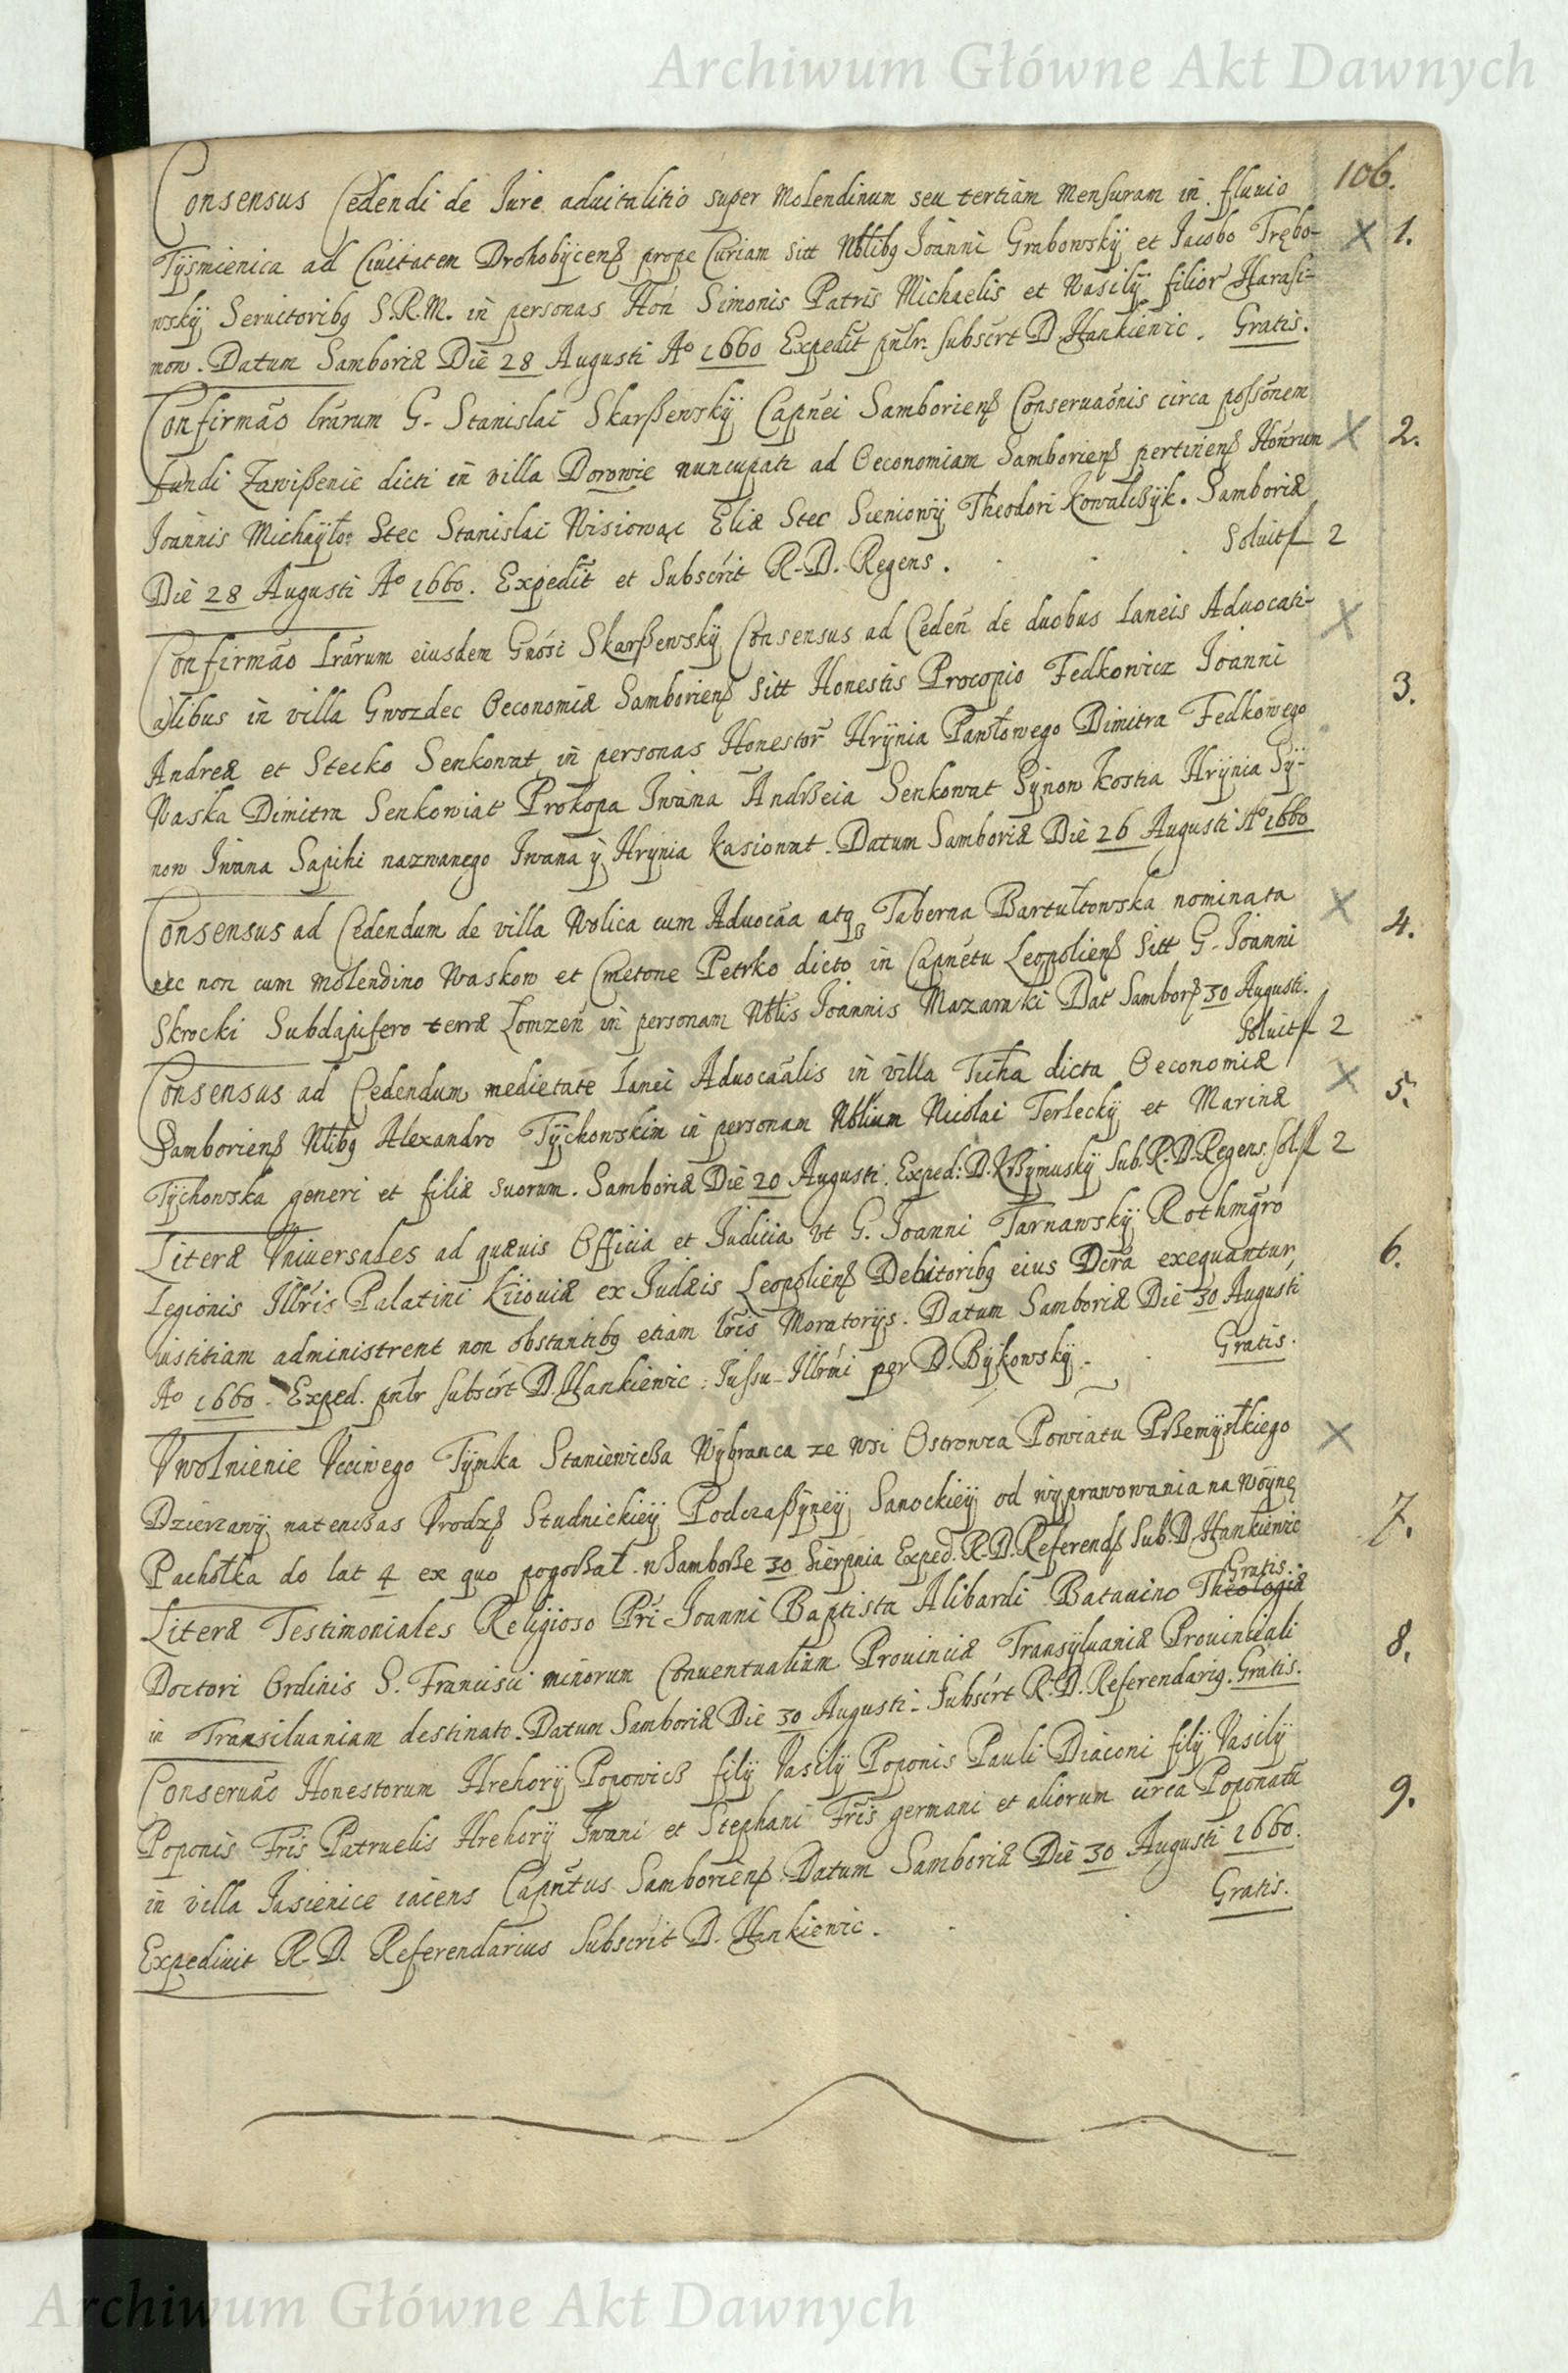 Archiwum Główne Akt Dawnych
106.
Consensus Cedendi de Iure aduitalitio super Molendinum seu tertiam mensuram in fluuio
Tyśmienica ad Ciuitatem Drohobycenß prope Curiam sitt Nblibg Ioanni Grabowskÿ et Iacobo Trębo- 1.
wskÿ Seruitoribg S.R.M. in personas Hon Simonis Patris Michaelis et Wasilÿ filior Harasi-
mow. Datum Samboriæ Die 28 Augusti Aº 1660 Expedit pntr. subscrt D. Hankiewic. Gratis.
Confirmāo lrārum G. Stanislai Skarßewskÿ Capnei Samborienß Conseruaōnis circa possōnem
fundi Zawißenie dicti in villa Dorowie nuncupati ad Oeconomiam Samborienß pertinenß Honrum 2.
Ioannis Michaÿło: Stec Stanislai Nisiowąc Eliæ Stec Sieniowÿ Theodori Kowalcßyk. Samboriæ
Die 28 Augusti Aº 1660. Expedit et Subscrit R. D. Regens. Soluit f 2
Confirmāo Lrārum eiusdem Gnōsi Skarßewskÿ Consensus ad Ceden de duobus Laneis Aduocati-
alibus in villa Gwozdec Oeconomiæ Samborienß sitt Honestis Procopio Fedkowicz Ioanni 3.
Andreæ et Stecko Senkowat in personas Honestor Hrÿnia Pawłowego Dimitra Fedkowego
Waska Dimitra Senkowiat Prokopa Iwana Andrßeia Senkowat Sÿnow Kostia Hrÿnia Sÿ-
now Iwana Sapihi nazwanego Iwana ÿ Hrÿnia Kasionat. Datum Samboriæ Die 26 Augusti Aº 1660
Consensus ad Cedendum de villa Wolica cum Aduocāa atqß Taberna Bartułtowska nominata 4.
nec non cum molendino Waskow et Cmetone Petrko dicto in Capnetu Leopolienß sitt G. Ioanni
Skrocki Subdapifero terræ Łomzen in personam Nblis Ioannis Mazarnki Dat Samborß 30 Augusti.
Soluit f 2
Consensus ad Cedendum medietate Lanei Aduocāalis in villa Ticha dicta Oeconomiæ 5.
Samborienß Nlibg Alexandro Tÿchowskim in personam Nblium Nicolai Terleckÿ et Marinæ
Tÿchowska generi et filiæ suorum. Samboriæ Die 20 Augusti. Exped: D. Krßÿmuskÿ Sub. R. D. Regens. sol. f 2
Literæ Vniuersales ad quæuis Officia et Iudicia vt G. Ioanni Tarnawskÿ Rothmgro 6.
Legionis Illris Palatini Kiiouiæ ex Iudæis Leopolienß Debitoribg eius Dcra exequantur,
iustitiam administrent non obstantibg etiam lris Moratorÿs. Datum Samboriæ Die 30 Augusti
Aº 1660. Exped. pntr subscrt D. Hankiewic. Iussu Illrmi per D. Bÿkowskÿ. Gratis.
Vwolnienie Vcciwego Tÿmka Staniewicßa Wÿbranca ze wsi Ostrowca Powiatu Pßemÿslkiego
Dzierzawÿ natencßas Vrodzß Studnickieÿ Podczaßÿneÿ Sanockieÿ od wÿprawowania na Woÿnę 7.
Pachołka do lat 4 ex quo pogorßał. w Samborße 30 Sierpnia Exped. R. D. Referendß Sub. D. Hankiewic
Gratis.
Literæ Testimoniales Religioso Pri Ioanni Baptista Alibardi Batauino Theologiæ
Doctori Ordinis S. Francisci minorum Conuentualium Prouinciæ Transÿluaniæ Prouinciali 8.
in Transiluaniam destinato. Datum Samboriæ Die 30 Augusti. Subscrt R. D. Referendarig. Gratis.
Conseruāo Honestorum Hrehorÿ Popowicß filÿ Vasilÿ Poponis Pauli Diaconi filÿ Vasilÿ
Poponis Fris Patruelis Hrehorÿ Iwani et Stephani Fris germani et aliorum circa Poponatū 9.
in villa Iasienice iacens Capntus Samborienß. Datum Samboriæ Die 30 Augusti 1660.
Expediuit R. D. Referendarius Subscrit D. Hankiewic. Gratis.
Archiwum Główne Akt Dawnych